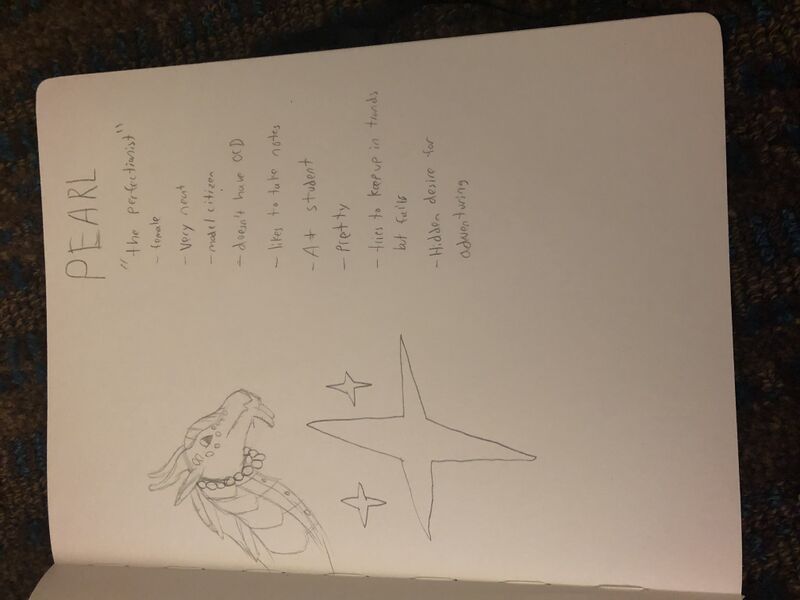 PEARL
"the perfectionist"
- female
- Very neat
- model citizen
- doesn't have OCD
- likes to take notes
- A+ student
- Pretty
- tries to keep up in trands
but fails
- Hidden desire for
adventuring